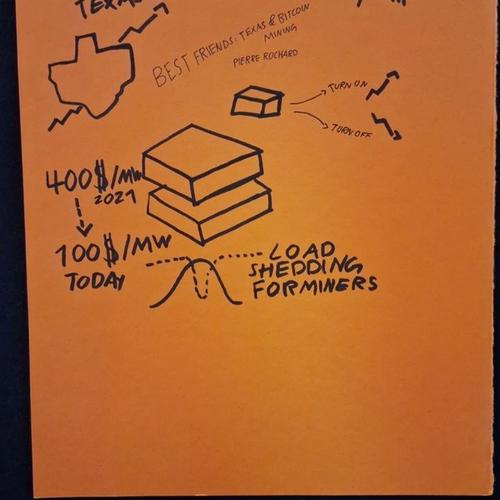 TEXAS
BEST FRIENDS: TEXAS & BITCOIN
MINING
PIERRE ROCHARD
TURN ON
TURN OFF
400$/MW
2021
100$/MW
TODAY
LOAD
SHEDDING
FOR MINERS